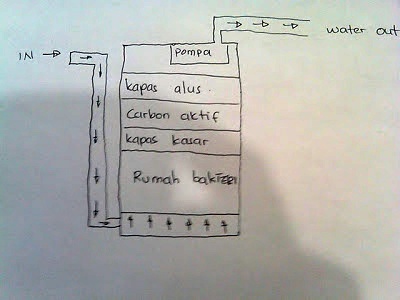 IN
pompa
water out
kapas alus.
Carbon aktif
kapas kasar
Rumah bakTERI